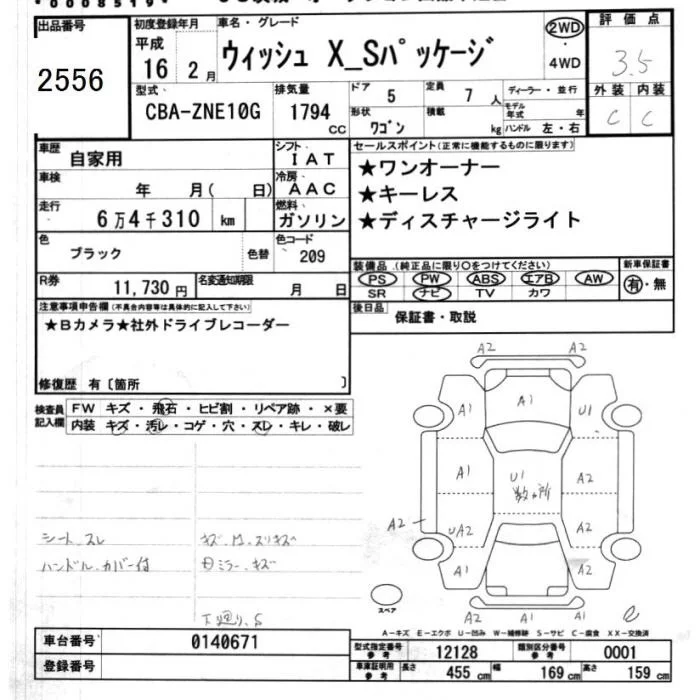 *0008519*
出品番号 2556
初度登録年月 平成 16 2月
車名・グレード ウィッシュ X_Sパッケージ
2WD ・ 4WD
評価点 3.5
外装 内装
C C
型式 CBA-ZNE10G
排気量 1794 CC
ドア 5 定員 7人
形状 ワゴン 積載 kg
ディーラー・並行
モデル年式 年
ハンドル 左・右
車歴 自家用
シフト IAT
車検 年 月( 日)
冷房 AAC
走行 6万4千310 km
燃料 ガソリン
色 ブラック 色替
色コード 209
R券 11,730円
名変通知期限 月 日
セールスポイント(正常に機能するものに限ります)
★ワンオーナー
★キーレス
★ディスチャージライト
装備品(純正品に限り○をつけてください)
PS PW ABS エアB AW
SR ナビ TV カワ
新車保証書 有・無
後日品 保証書・取説
注意事項申告欄(不具合内容等は具体的に記入して下さい)
★Bカメラ★社外ドライブレコーダー
修復歴 有〔箇所 〕
検査員記入欄
FW キズ・飛石・ヒビ割・リペア跡・×要
内装 キズ・汚レ・コゲ・穴・スレ・キレ・破レ
シート、スレ
ハンドル カバー付
キズ、凹、スリキズ
ミラー、キズ
下廻り、S
A2 A2
A1 A1 U1
A1 U1 数ヶ所 A2
A2 UA2 A2
A1 A2
A2 A1 A1
スペア
A-キズ E-エクボ U-凹み W-補修跡 S-サビ C-腐食 XX-交換済
車台番号 0140671
登録番号
型式指定番号 参考 12128 類別区分番号 参考 0001
車庫証明用 参考 長さ 455 cm 幅 169 cm 高さ 159 cm